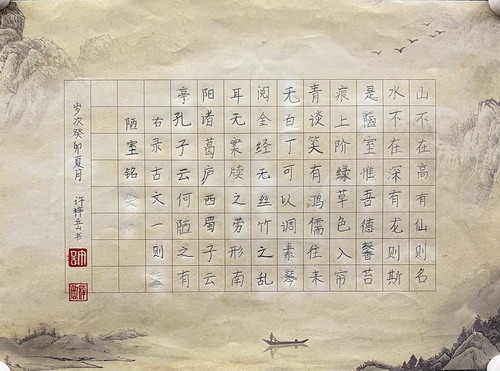 山不在高有仙则名
水不在深有龙则斯
是陋室惟吾德馨苔
痕上阶绿草色入帘
青谈笑有鸿儒往来
无白丁可以调素琴
阅金经无丝竹之乱
耳无案牍之劳形南
阳诸葛庐西蜀子云
亭孔子云何陋之有
右录古文一则
陋室铭
岁次癸卯夏月 许梓岳书